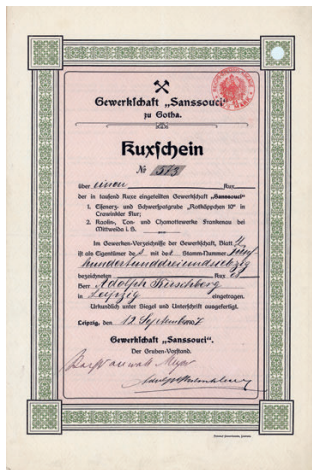 Gewerkschaft „Sanssouci"
zu Gotha.
Kuxschein
No 573
über einen Kux
der in tausend Kuxe eingeteilten Gewerkschaft „Sanssouci"
1. Eisenerz- und Schwerspatgrube „Rotkäppchen 10" in
Crawinkler Flur;
2. Kaolin-, Ton- und Chamottewerke Frankenau bei
Mittweida i. S.
Im Gewerken-Verzeichnisse der Gewerkschaft, Blatt
ist als Eigentümer des mit der Stamm-Nummer fünf
hundertunddreiundsiebzig
bezeichneten Kux
Herr Adolph Hirschberg
in Leipzig eingetragen.
Urkundlich unter Siegel und Unterschrift ausgefertigt.
Leipzig, den 12. September 1907
Gewerkschaft „Sanssouci".
Der Gruben-Vorstand.
Rechtsanwalt Meyer